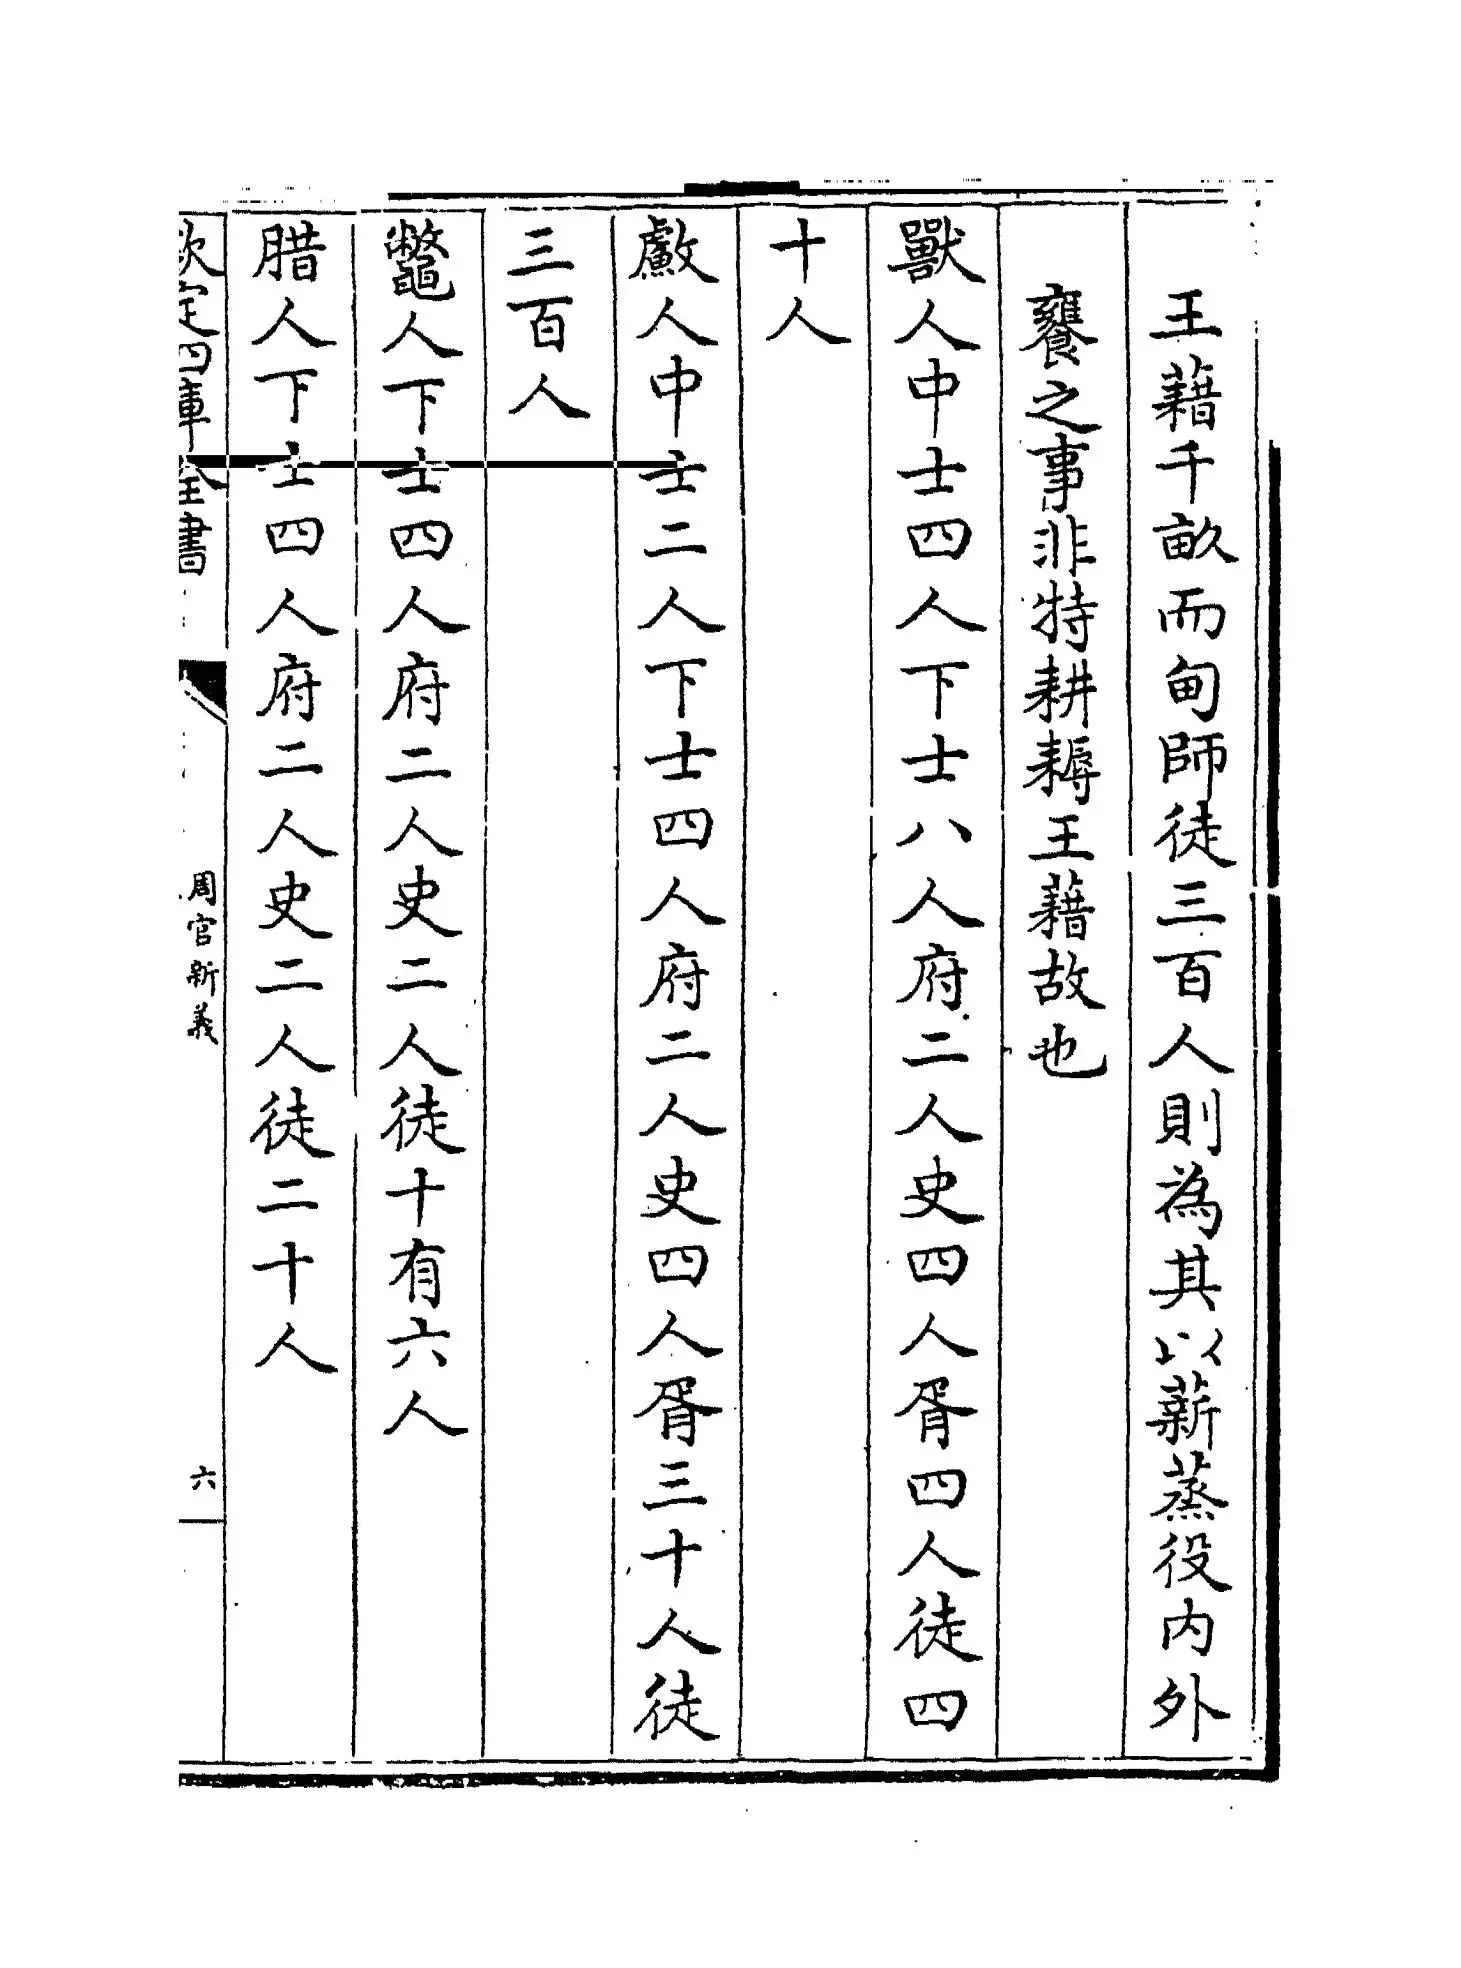 王藉千畝而甸師徒三百人則為其以薪蒸役内外
饔之事非特耕耨王藉故也
獸人中士四人下士八人府二人史四人胥四人徒四
十人
䱷人中士二人下士四人府二人史四人胥三十人徒
三百人
鼈人下士四人府二人史二人徒十有六人
腊人下士四人府二人史二人徒二十人
欽定四庫全書
周官新義
六